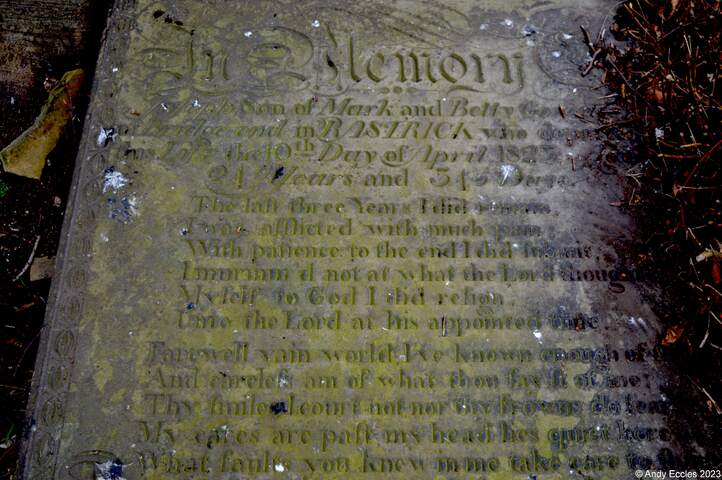 In Memory
Son of Mark and Betty
in RASTRICK who
the 10th Day of April 182
Years and 34 Days
The last three Years I did remain,
I was afflicted with much pain;
With patience to the end I did submit,
I murmur'd not at what the Lord thought
Myself to God I did resign,
Unto the Lord at his appointed time.
Farewell vain world I've known enough of
And careless am of what thou say'st of me;
Thy smiles I court not nor thy frowns do fear
My cares are past my head lies quiet here
What faults you knew in me take care to
© Andy Eccles 2023